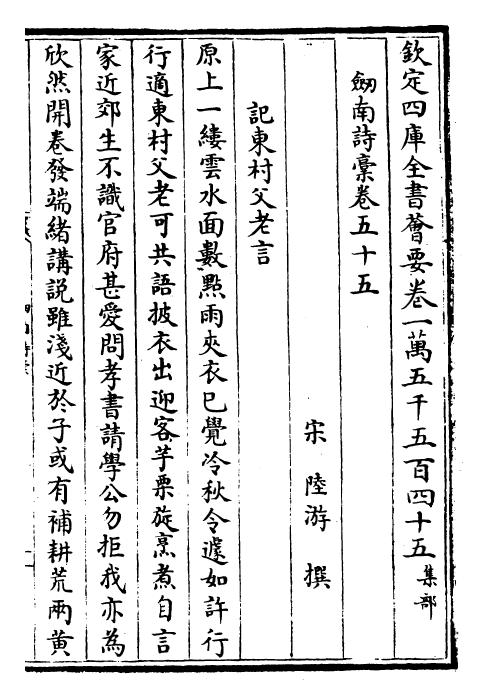 欽定四庫全書薈要卷一萬五千五百四十五 集部
劒南詩稾卷五十五
宋 陸游 撰
記東村父老言
原上一縷雲水面數點雨夾衣已覺冷秋令遽如許行
行適東村父老可共語披衣出迎客芋栗旋烹煮自言
家近郊生不識官府甚愛問孝書請學公勿拒我亦為
欣然開卷發端緒講説雖淺近於子或有補耕荒兩黄